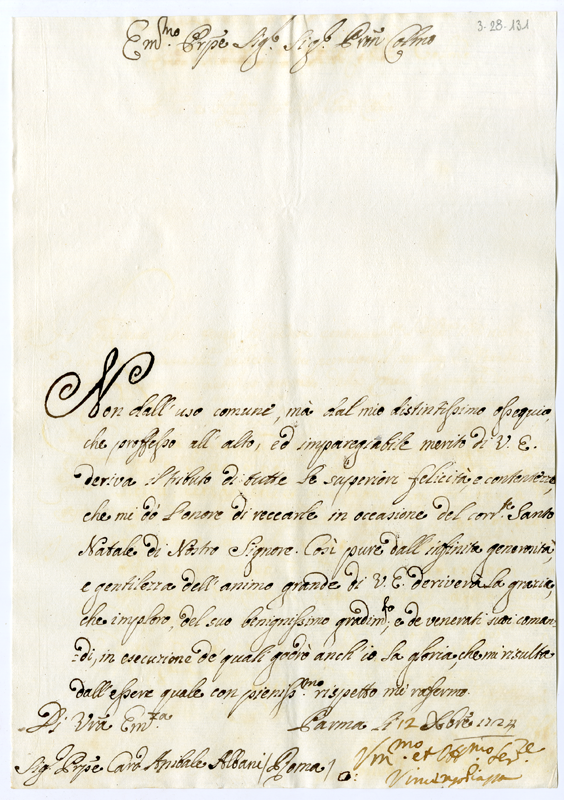 3-28-131
Em.mo Prpe Sig.r Sig.r Prôn Colmo
Non dall' uso comune, mà dal mio distintissimo ossequio,
che professo all' alto, ed impareggiabile merito di V. E.
deriva il tributo di tutte le superiori felicità e contentezze,
che mi dò l'onore di reccarle in occasione del corr.te Santo
Natale di Nostro Signore. Così pure dall' infinita generosità,
e gentilezza dell' animo grande di V. E. deriverà la grazia,
che imploro, del suo benignissimo gradim.to, e de venerati suoi coman-
di, in esecuzione de quali godrò anch' io la gloria, che mi risulta
dall' essere quale con pieniss.mo rispetto mi rafermo
Di Vrã Em.za
Parma li 12 Xbre 1724
Sig.r Prpe Card. Anibale Albani / Roma /
Um.mo et Obb.mo Ser.re